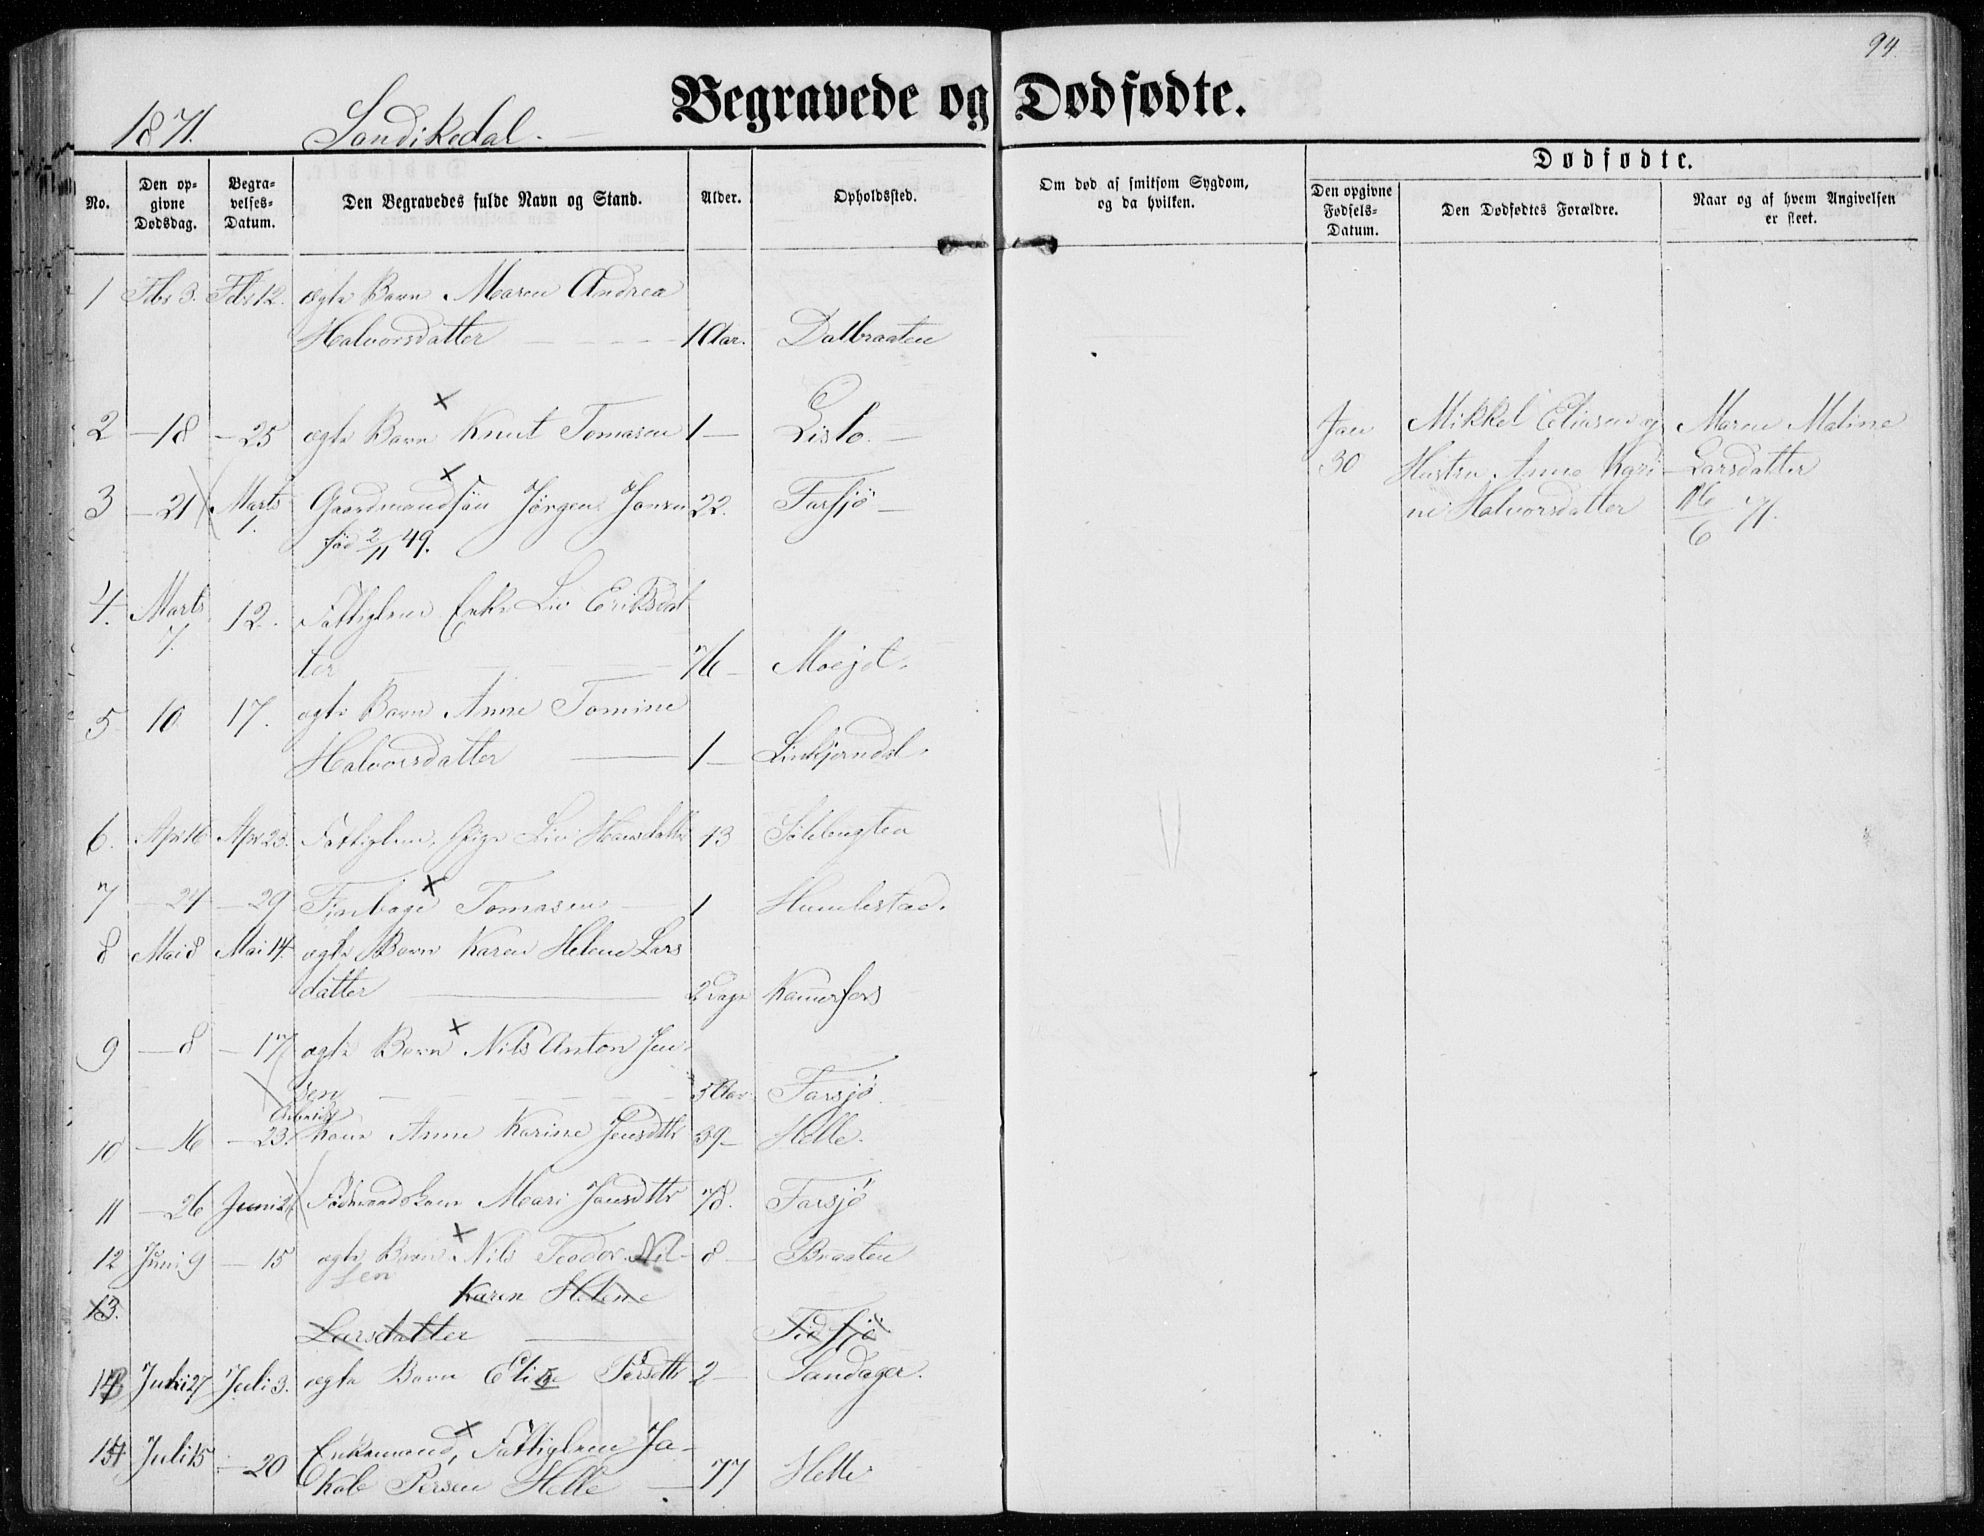 94.
1871. Sandikedal.
Begravede og Dødfødte.
No.
Den opgivne Dødsdag.
Begravelses-Datum.
Den Begravedes fulde Navn og Stand.
Alder.
Opholdssted.
Om død af smitsom Sygdom,
og da hvilken.
Dødfødte.
Den opgivne
Fødsels-
Datum.
Den Dødfødtes Forældre.
Naar og af hvem Angivelsen
er skeet.
1 Fbr 3. Fbr 12. ægte Barn Maren Andrea
Halvorsdatter 1 Aar. Dalbraaten
2 – 18 – 25 ægte Barn Knut Tomasen 1 – Lislo.
3 – 21 Marts 1. Gaardmandsøn Jörgen Jonsen 22. Farsjø
fød 2/11 49.
4. Marts 7. 12. Fattiglem Enke Liv Eriksdat
ter 76 – Moejet.
5 10 17. ægte Barn Anne Tomine
Halvorsdatter 1 –
6. Apr 16 Apr 23. Fattiglem, Pige Liv Hansdatter 13
7 – 24 – 29 Tomasen 1 Humlestad.
8 Mai 8 Mai 14. ægte Barn Karen Helene Lars
datter 2 Dage Kamerfos
9 – 8 – 17 ægte Barn Nils Anton Jen-
sen 5 Aar Farsjø
10 – 16 – 23. Arbeids
Kone Anne Karine Jensdtr 39 – Helle.
11 – 26 Juni 2 Födraadskone Mari Jansdttr 78. Farsjø
12 Juni 9 – 15 ægte Barn Nils Teodor Nil-
sen 8 – Braaten
13. Karen Helene
Larsdatter
13 Juni 27 Juli 3. ægte Barn Elise 2 – Sandager.
14 Juli 15 – 20 Enkemand, Fattiglem Ja-
kob Persen Helle 77 Helle
Jan
30
Mikkel Eliasen og
Hustru Anne Kari-
ne Halvorsdatter
Maren Maline
Larsdatter
16/6 71.